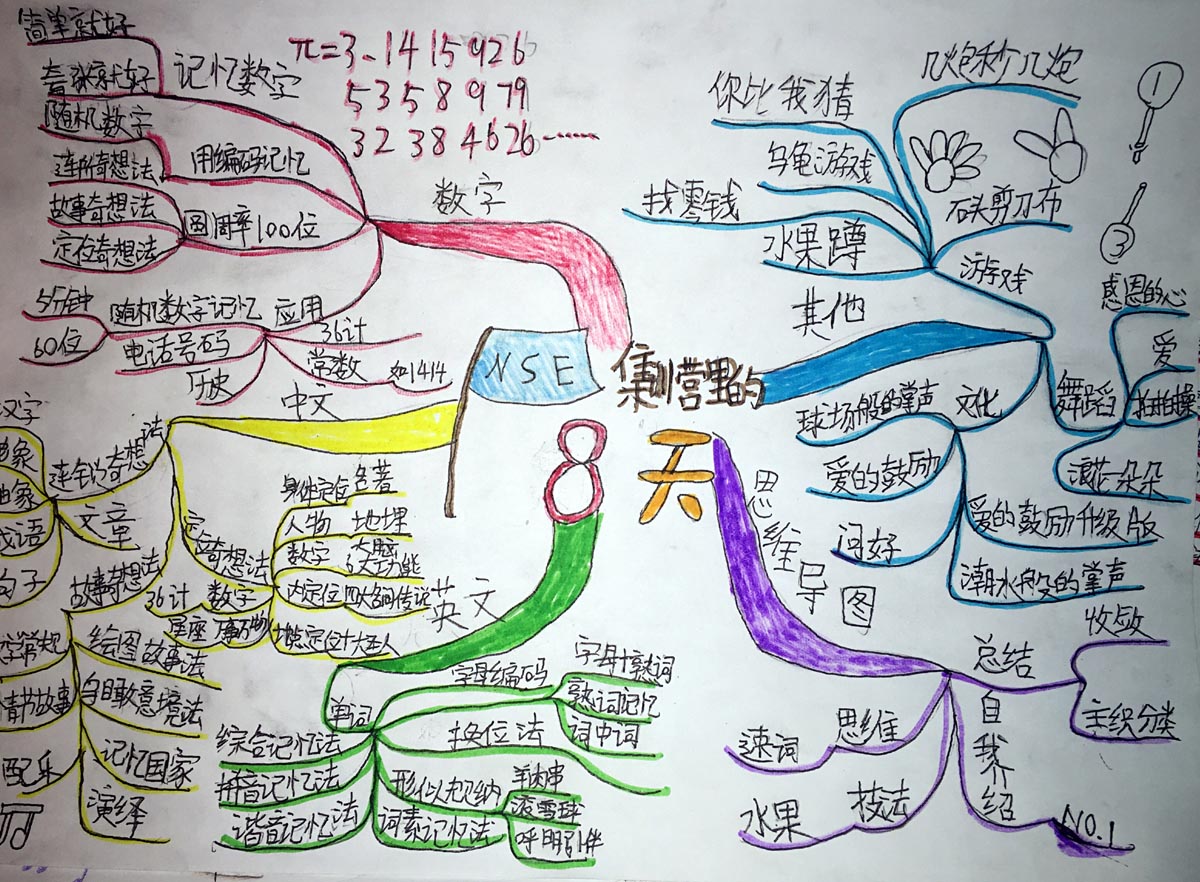 NSE
集训营里的
8天
数字
π=3.1415926
5358979
32384626……
记忆数字
简单就好
夸张就好
用编码记忆
随机数字
圆周率100位
连锁奇想法
故事奇想法
定位奇想法
应用
随机数字记忆
5分钟
60位
36计
电话号码
常数
如1414
历史
中文
连锁奇想法
汉字
抽象
成语
句子
文章
故事奇想法
绘图故事法
鸟瞰意境法
情节故事
记忆国家
配乐
演绎
定位奇想法
身体定位
名著
人物
地理
数字
大脑
6大功能
四大名间传记
数字
36计
星座
万事万物
地点定位
十大圣人
英文
单词
字母编码
字母+熟词
熟词记忆
词中词
换位法
综合记忆法
拼音记忆法
谐音记忆法
形似归纳
词素记忆法
羊肉串
滚雪球
呼朋引伴
思维导图
总结
收敛
组织分类
自我介绍
NO.1
思维
速词
技法
水果
其他
游戏
几炮秒几炮
你比我猜
乌龟游戏
找零钱
水果蹲
石头剪刀布
1
3
文化
球场般的掌声
爱的鼓励
问好
爱的鼓励升级版
潮水般的掌声
舞蹈
感恩的心
爱
拍拍操
浪花一朵朵